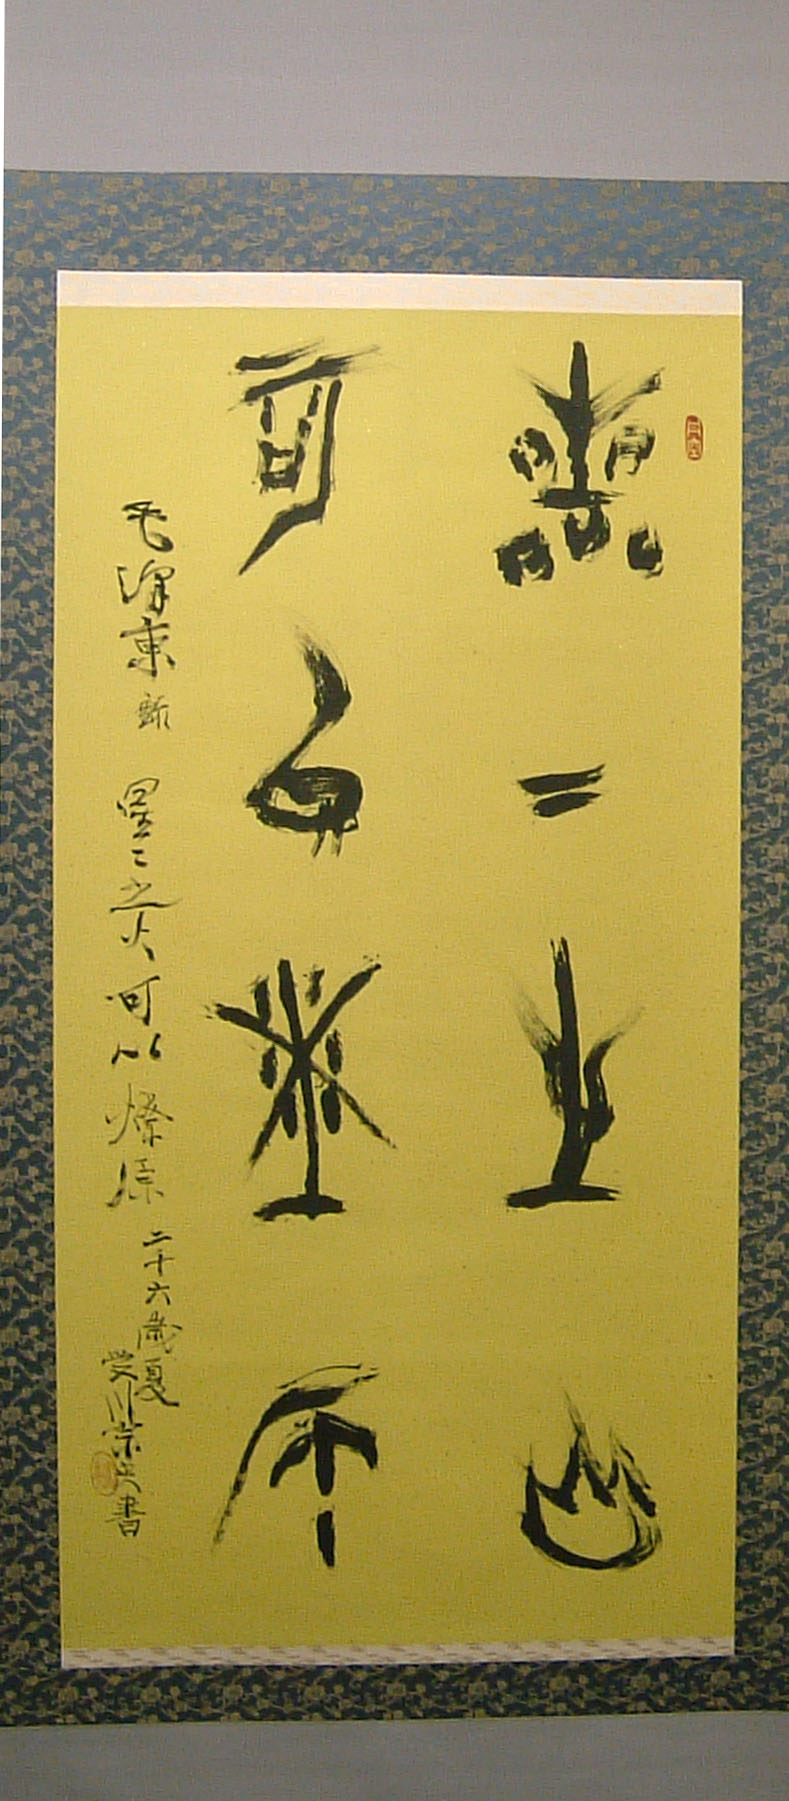 星〻之火
可以燎原
毛澤東語 星〻之火可以燎原
二十六歳夏
書